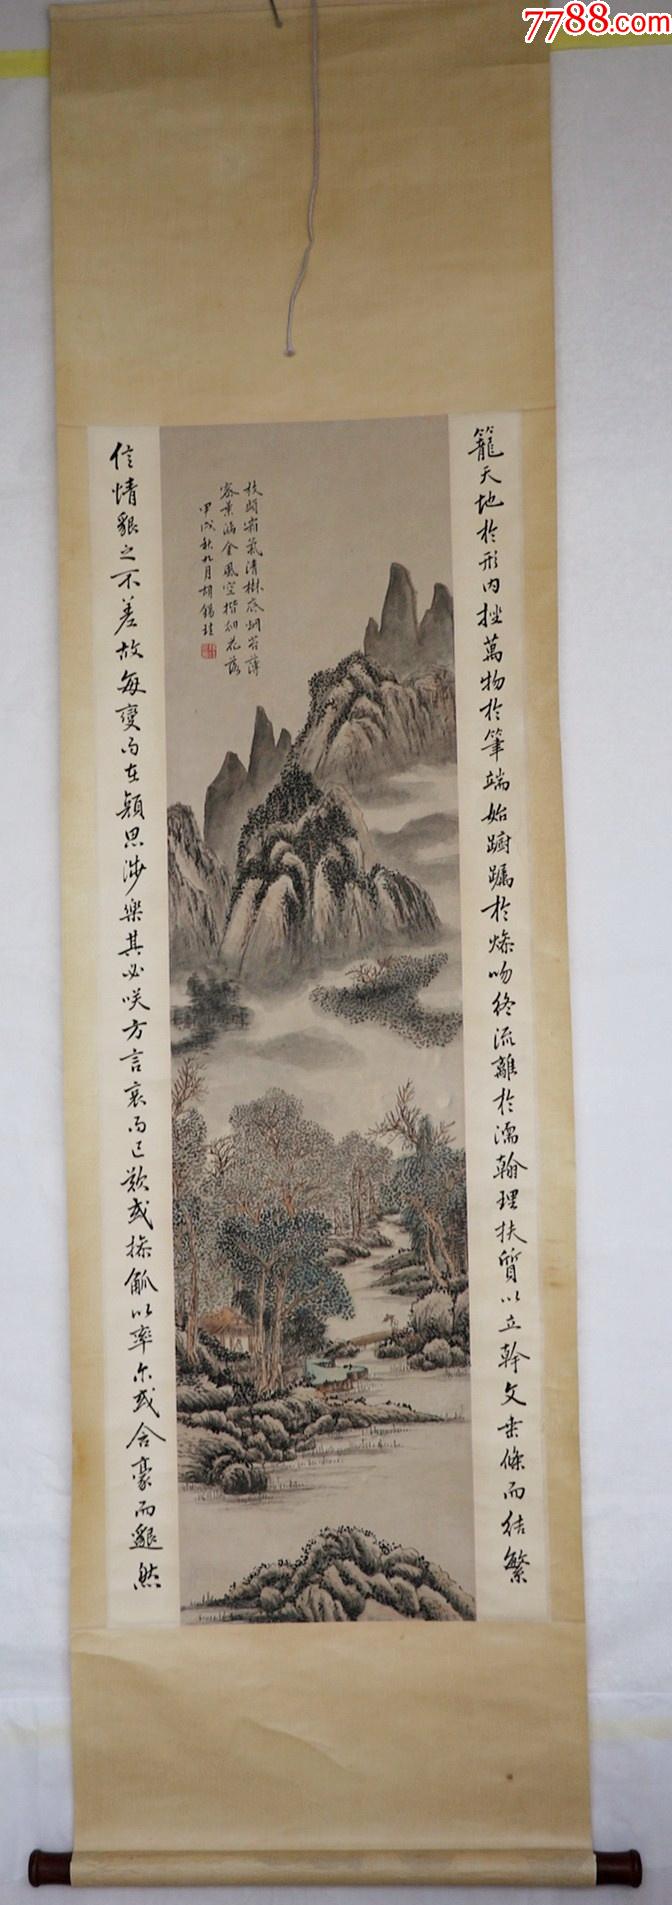 7788.com
籠天地於形內挫萬物於筆端始躑躅於燥吻終流離於濡翰理扶質以立幹文垂條而結繁
信情貌之不差故每變而在顏思涉樂其必咲方言哀而已歎或操觚以率尔或含豪而邈然
枝頭霜氣清樹底烟苔薄
葉滿金風空階細花落
甲戌秋九月胡錫珪